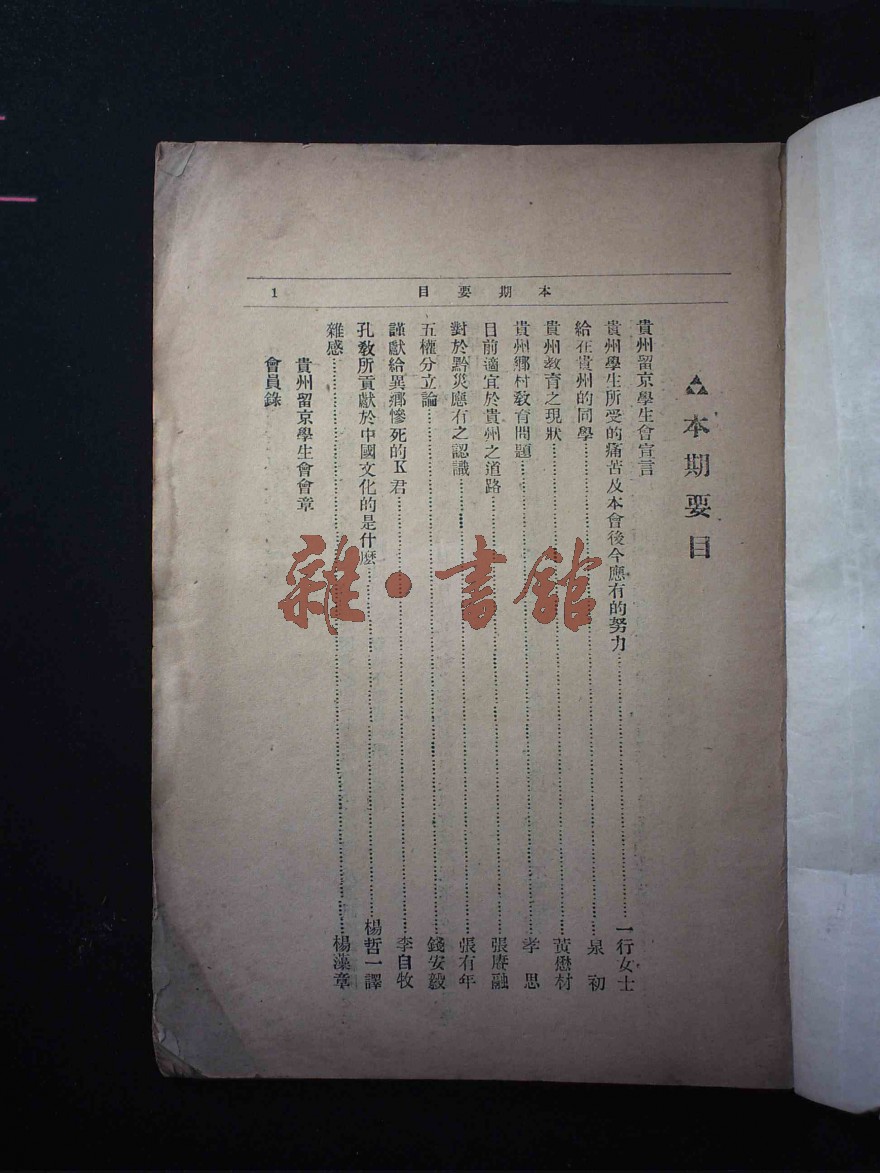 本期要目
1
本期要目
貴州留京學生會宣言
貴州學生所受的痛苦及本會後今應有的努力……一行女士
給在貴州的同學……泉初
貴州教育之現狀……黃懋材
貴州鄉村教育問題……孝思
目前適宜於貴州之道路……張賡融
對於黔災應有之認識……張有年
五權分立論……錢安毅
謹獻給異鄉慘死的K君……李自牧
孔教所貢獻於中國文化的是什麼……楊哲一譯
雜感……楊藻章
貴州留京學生會會章
會員錄
雜·書館